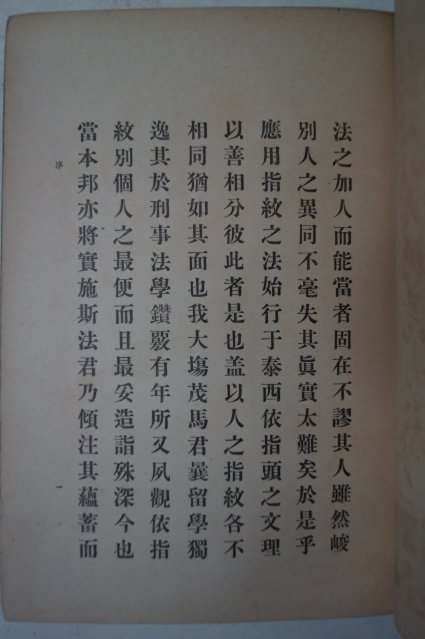 法之加人而能當者固在不謬其人雖然峻
別人之異同不毫失其眞實太難矣於是乎
應用指紋之法始行于泰西依指頭之文理
以善相分彼此者是也盖以人之指紋各不
相同猶如其面也我大塲茂馬君曩留學獨
逸其於刑事法學鑽覈有年所又夙觀依指
紋別個人之最便而且最妥造詣殊深今也
當本邦亦將實施斯法君乃傾注其蘊蓄而
序
一